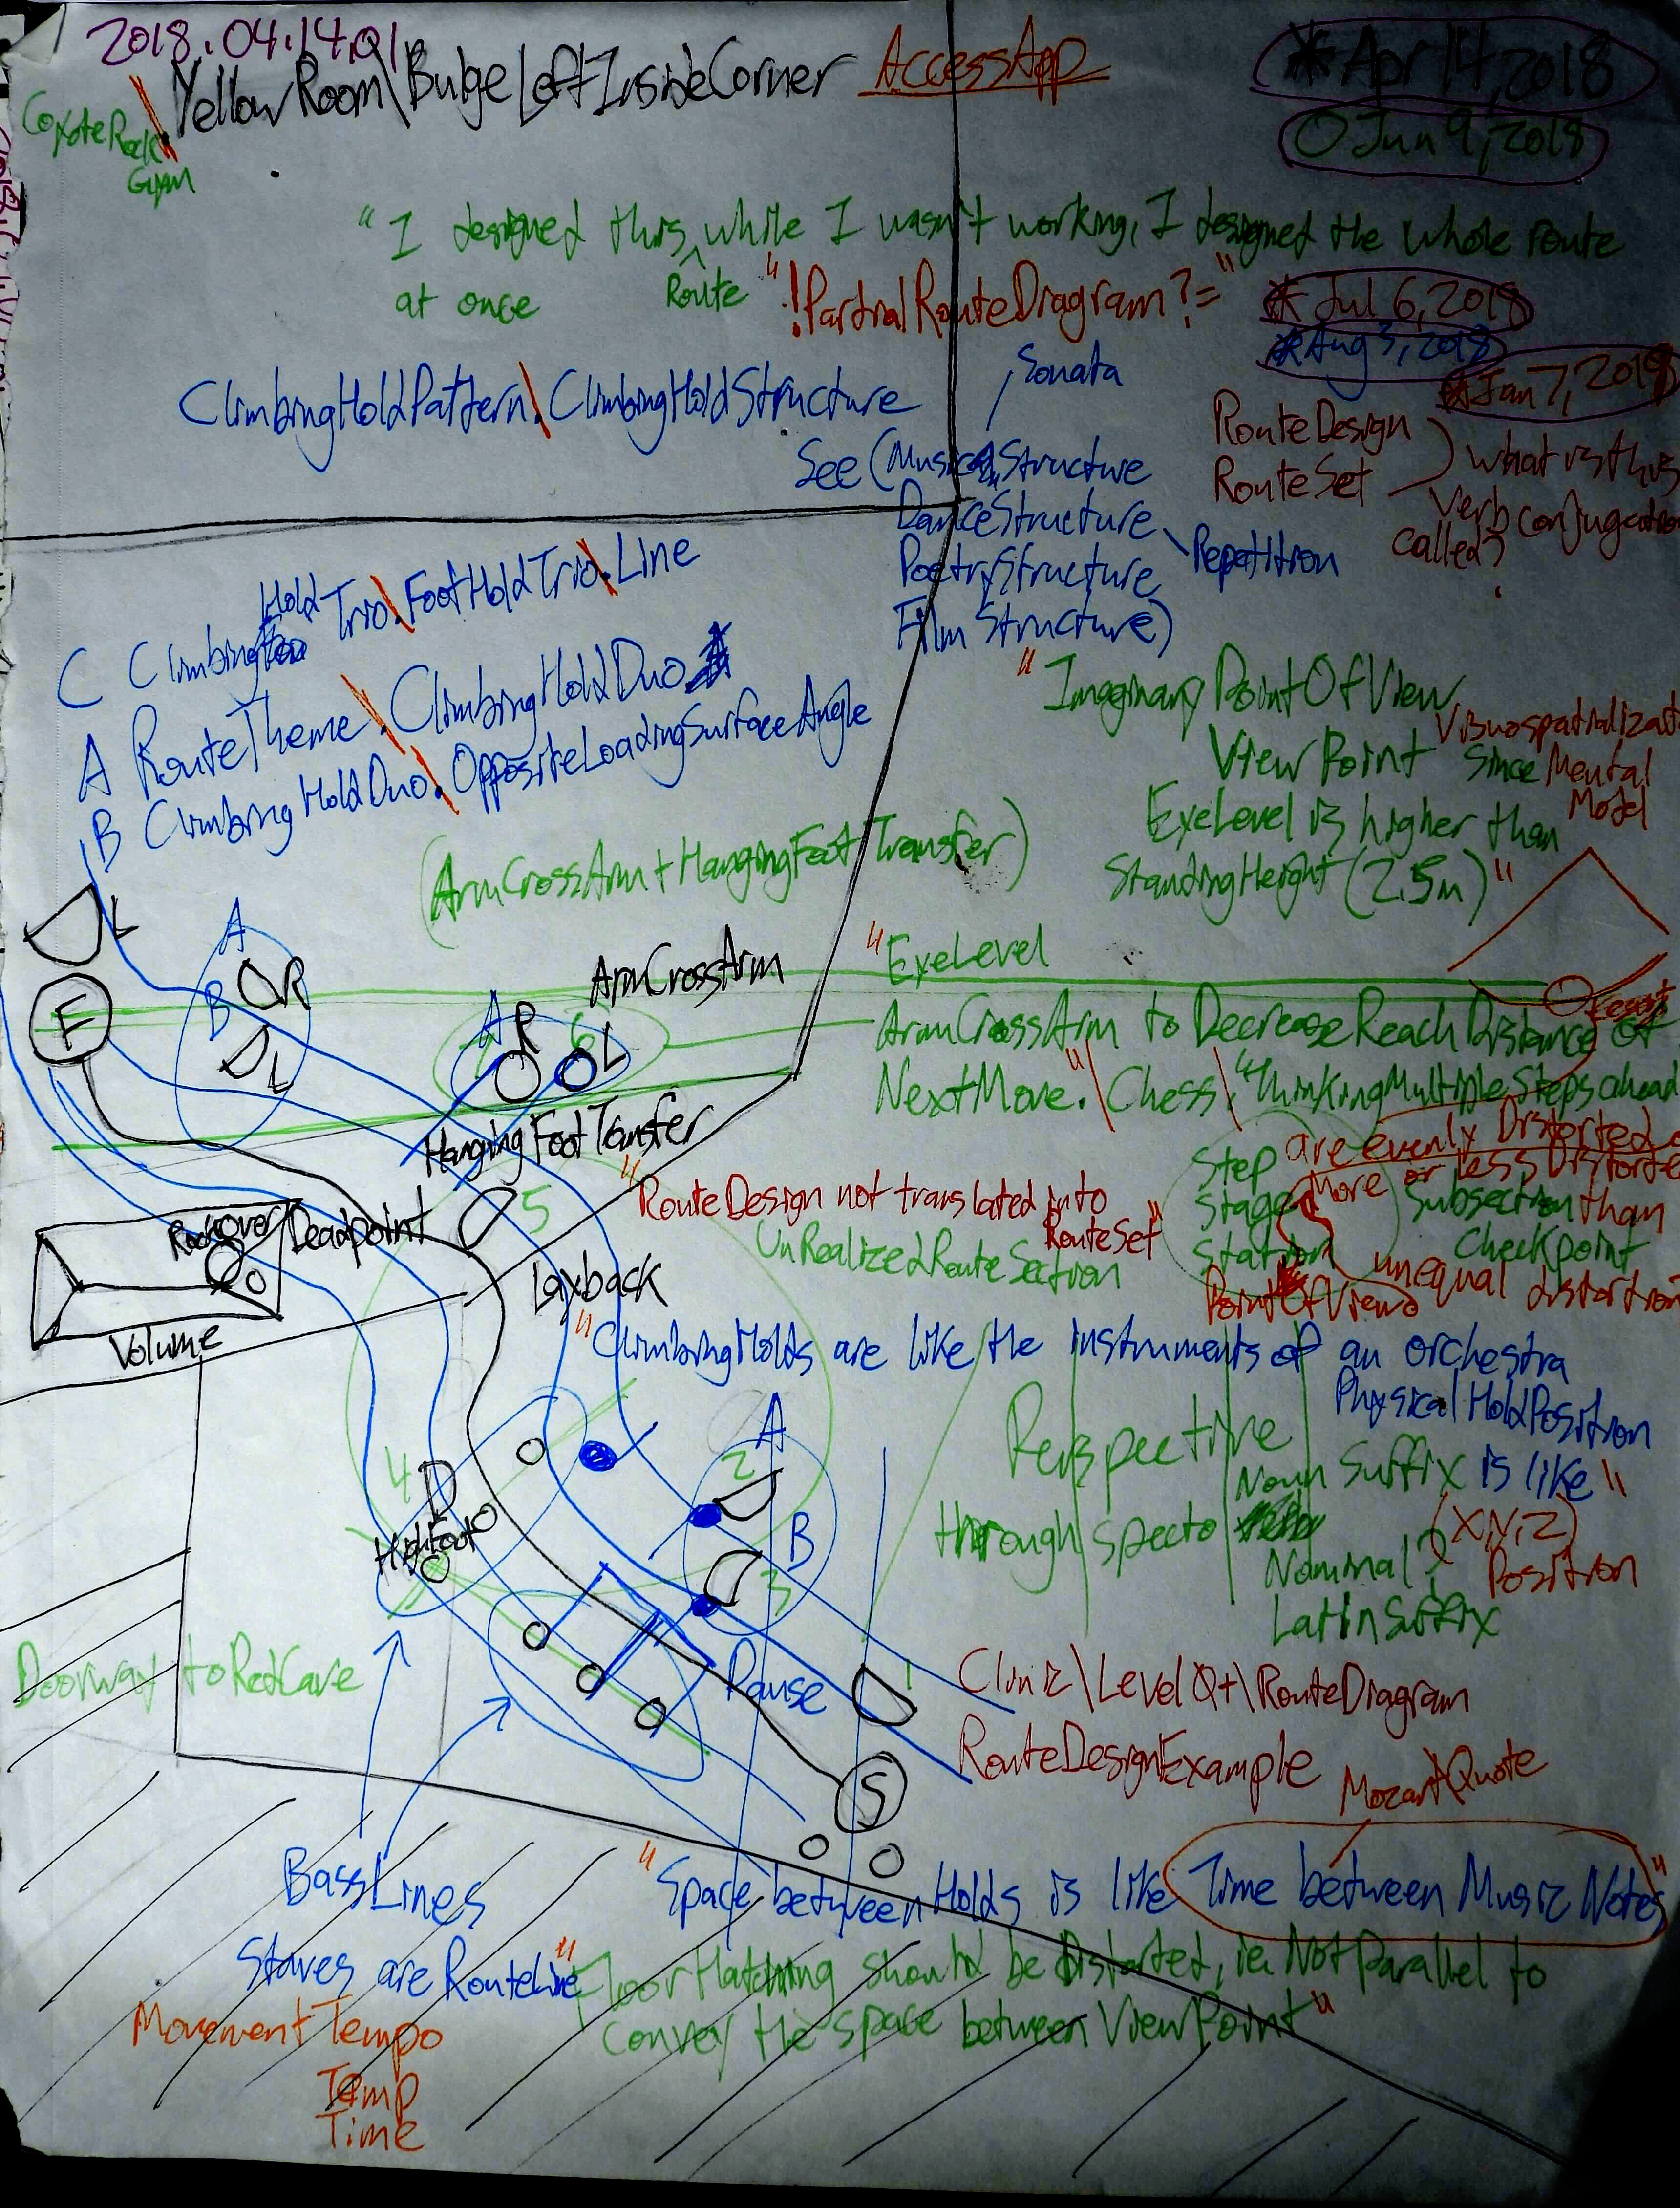 2018.04.14.01
YellowRoom\BulgeLeftInsideCorner AccessApp
* Apr 14, 2018
O Jun 9, 2018
CoyoteRock
Gym
"I designed this while I wasn't working, I designed the whole route
at once
Route
"!PartialRouteDiagram?="
* Jul 6, 2018
* Aug 3, 2018
* Jan 7, 2019
Sonata
ClimbingHoldPattern\.ClimbingHoldStructure
See (MusicalStructure
DanceStructure
PoetryStructure
FilmStructure)
Repetition
RouteDesign
RouteSet
what is this
verb conjugation
called?
C Climbing Hold Trio\.FootHoldTrio\.Line
A RouteTheme\.ClimbingHoldDuo
B ClimbingHoldDuo\.OppositeLoadingSurfaceAngle
"ImaginaryPointOfView
ViewPoint
Since Mental
Model
EyeLevel is higher than
StandingHeight (2.5m)"
(ArmCrossArm + HangingFootTransfer)
L
F
A
R
B
L
A
R
6
L
ArmCrossArm
"EyeLevel
ArmCrossArm to DecreaseReachDistance of
NextMove."\Chess\."ThinkingMultipleStepsahead
HangingFootTransfer
5
"RouteDesign not translated into
RouteSet"
UnRealizedRouteSection
Step
Stage
Station
PointOfViews
are evenly Distorted
More or less Distorted
Subsection than
Checkpoint
unequal distortion
Rockover/Deadpoint
Layback
Volume
"ClimbingHolds are like the instruments of an orchestra
PhysicalHoldPosition
is like"
(X,Y,Z)
Position
Perspective
Noun Suffix
through specto
Nominal?
LatinSuffix
4
HighFoot
2
A
B
3
Pause
1
S
Doorway to RedCave
Clinic\LevelQ+\RouteDiagram
RouteDesignExample
MozartQuote
BassLines
Staves are RouteLine
"Space between Holds is like Time between Music Notes"
"FloorHatching should be Distorted, ie. Not Parallel to
convey the space between ViewPoint"
MovementTempo
Temp
Time